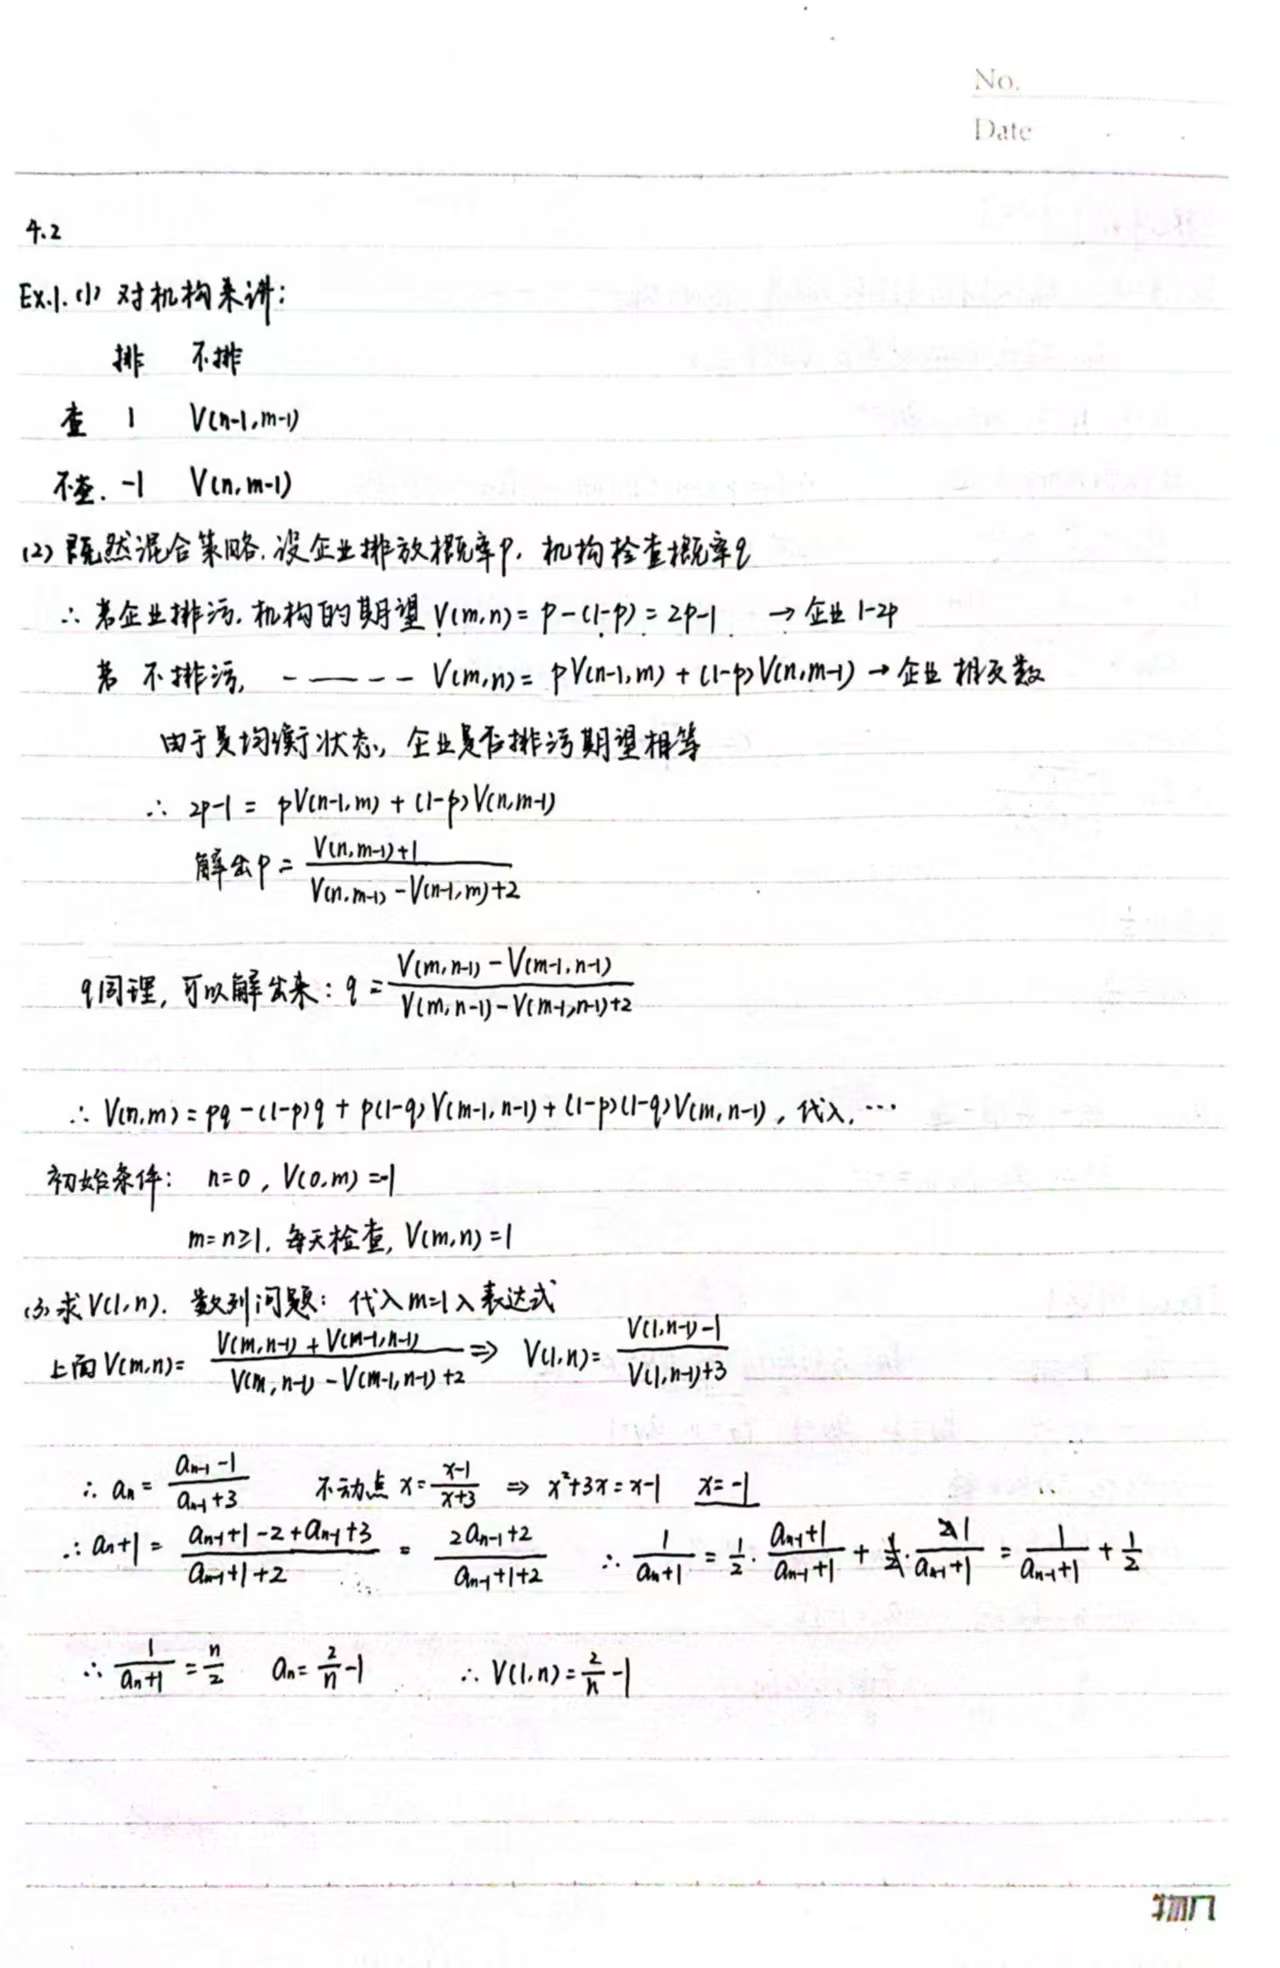 No.
Date
4.2
Ex.1. (1) 对机构来讲:
排 不排
查 1 V(n-1,m-1)
不查. -1 V(n,m-1)
(2) 既然混合策略. 设企业排放概率p. 机构检查概率q
∴ 若企业排污. 机构的期望 V(m,n) = p-(1-p) = 2p-1 → 企业 1-2p
若 不排污, - — - - V(m,n) = pV(n-1,m) + (1-p)V(n,m-1) → 企业 相反数
由于是均衡状态, 企业是否排污期望相等
∴ 2p-1 = pV(n-1,m) + (1-p)V(n,m-1)
解出p = \frac{V(n,m-1)+1}{V(n,m-1)-V(n-1,m)+2}
q同理, 可以解出来: q = \frac{V(m,n-1)-V(m-1,n-1)}{V(m,n-1)-V(m-1,n-1)+2}
∴ V(n,m) = pq-(1-p)q + p(1-q)V(m-1,n-1) + (1-p)(1-q)V(m,n-1), 代入, ...
初始条件: n=0, V(0,m) =-1
m=n≥1, 每天检查, V(m,n) =1
(3) 求V(1,n). 数列问题: 代入m=1入表达式
上面 V(m,n) = \frac{V(m,n-1)+V(m-1,n-1)}{V(m,n-1)-V(m-1,n-1)+2} ⇒ V(1,n) = \frac{V(1,n-1)-1}{V(1,n-1)+3}
∴ a_n = \frac{a_{n-1}-1}{a_{n-1}+3} 不动点 x = \frac{x-1}{x+3} ⇒ x²+3x = x-1 x=-1
∴ a_n+1 = \frac{a_{n-1}+1-2+a_{n-1}+3}{a_{n-1}+1+2} = \frac{2a_{n-1}+2}{a_{n-1}+1+2} ∴ \frac{1}{a_n+1} = \frac{1}{2}·\frac{a_{n-1}+1}{a_{n-1}+1} + \frac{1}{a_{n-1}+1} = \frac{1}{a_{n-1}+1} + \frac{1}{2}
∴ \frac{1}{a_n+1} = \frac{n}{2} a_n = \frac{2}{n}-1 ∴ V(1,n) = \frac{2}{n}-1